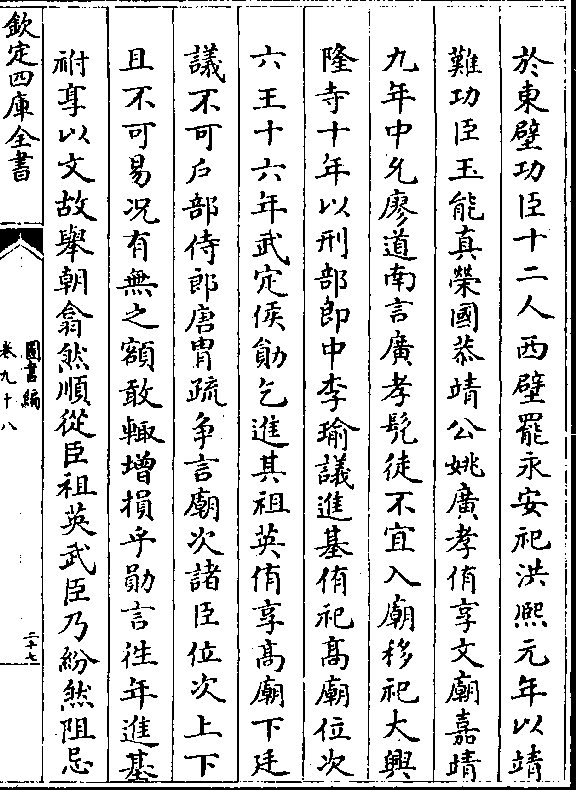 於東壁功臣十二人西壁罷永安祀洪熙元年以靖
難功臣玉能真榮國恭靖公姚廣孝侑享文廟嘉靖
九年中允廖道南言廣孝髡徒不宜入廟移祀大興
隆寺十年以刑部郎中李瑜議進基侑祀髙廟位次
六王十六年武定侯勛乞進其祖英侑享髙廟下廷
議不可戶部侍郎唐胄疏争言廟次諸臣位次上下
且不可易况有無之額敢輙增損乎勛言徃年進基
祔享以文故舉朝翕然順從臣祖英武臣乃紛然阻忌
欽定四庫全書
圖書編
卷九十八
二十七